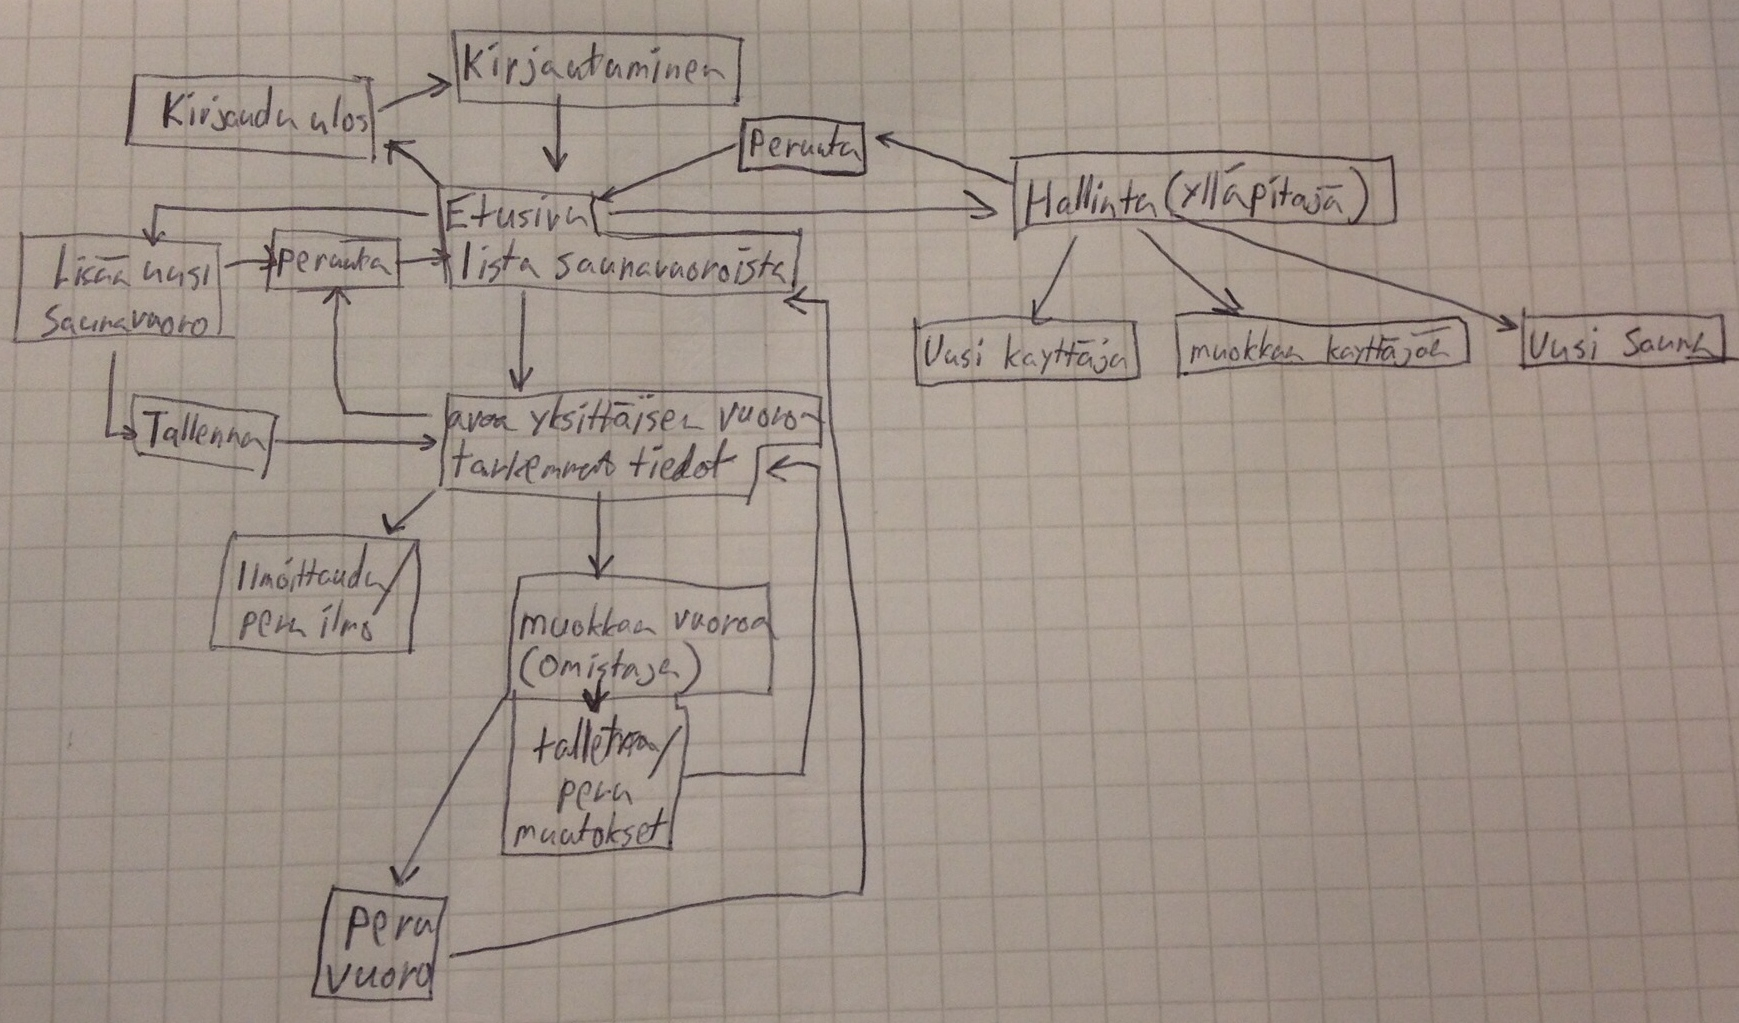 Kirjautuminen
Kirjaudu ulos
Peruuta
Hallinta (ylläpitäjä)
Etusivu
lista saunavuoroista
Lisää uusi
saunavuoro
peruuta
Uusi käyttäjä
muokkaa käyttäjää
Uusi Sauna
Tallenna
avaa yksittäisen vuoron
tarkemmat tiedot
Ilmoittaudu/
peru ilmo
muokkaa vuoroa
(omistaja)
talleta/
peru
muutokset
peru
vuoro